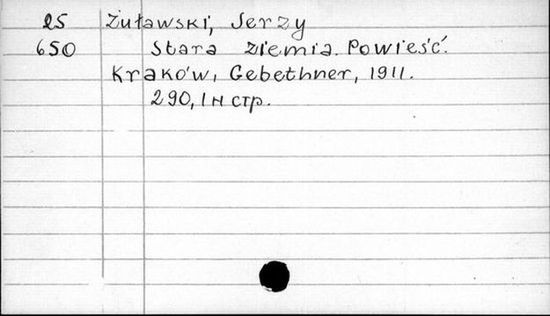 25 Żuławski, Jerzy
650 Stara ziemia. Powieść.
Kraków, Gebethner, 1911.
290, 1 н стр.